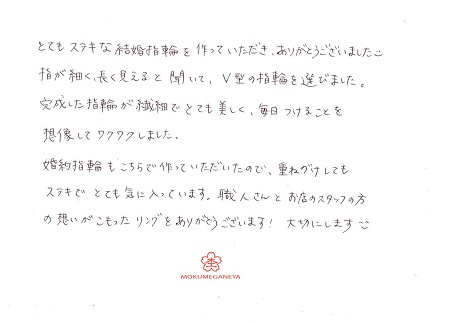 とてもステキな結婚指輪を作っていただき、ありがとうございました
指が細く、長く見えると聞いて、V型の指輪を選びました。
完成した指輪が繊細でとても美しく、毎日つけることを
想像してワクワクしました。
婚約指輪もこちらで作っていただいたので、重ねづけしても
ステキでとても気に入っています。職人さんとお店のスタッフの方
の想いがこもったリングをありがとうございます！大切にします
MOKUMEGANEYA